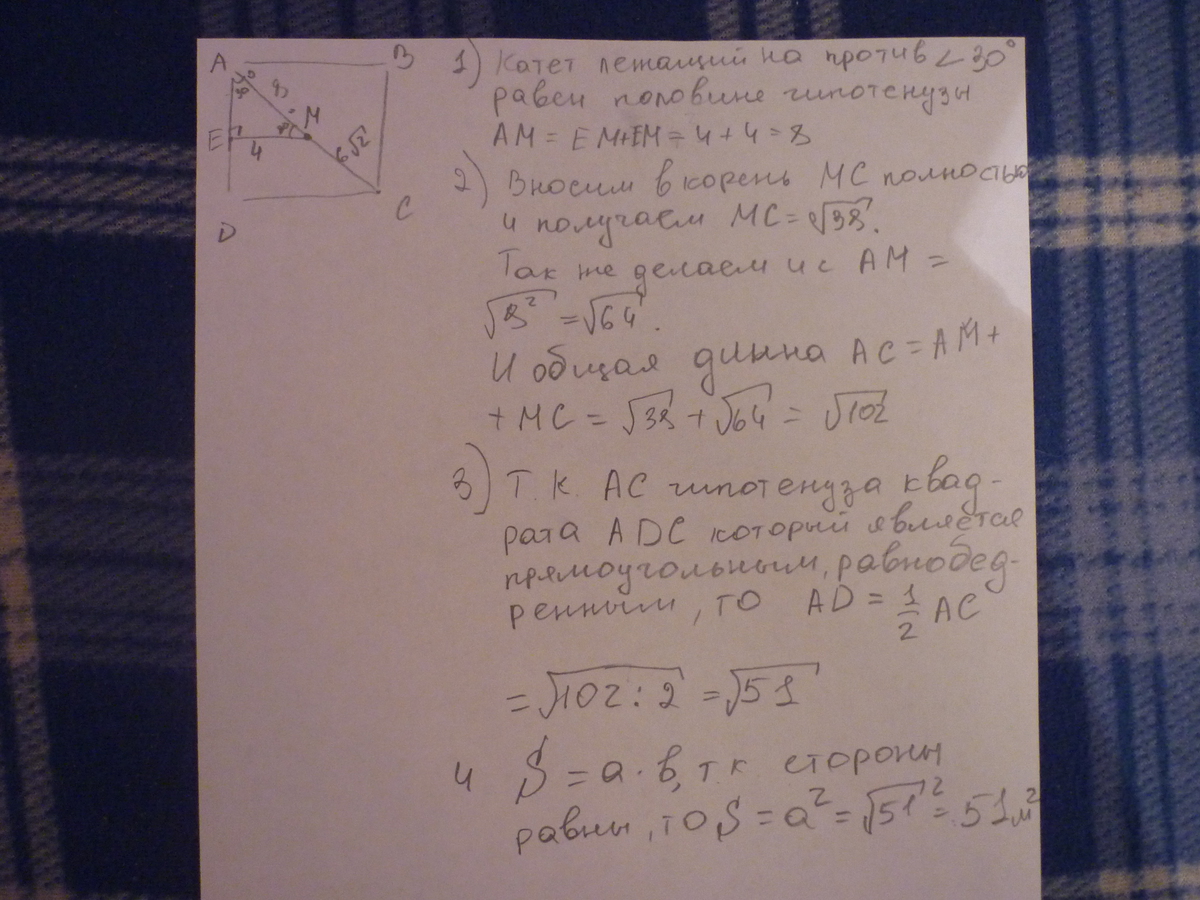 A B
8 M
E 4 6√2
D C
1) Катет лежащий на против ∠30°
равен половине гипотенузы
AM = EM+EM = 4 + 4 = 8
2) Вносим в корень MC полностью
и получаем MC = √38.
Так же делаем и с AM =
√8² = √64.
И общая длинна AC = AM +
+ MC = √38 + √64 = √102
3) Т.К. AC гипотенуза квад-
рата ADC который является
прямоугольным, равнобед-
ренным, ТО AD = 1/2 AC
= √102 : 2 = √51
4 S = a · в, т.к стороны
равны, то S = a² = √51² = 51 м²